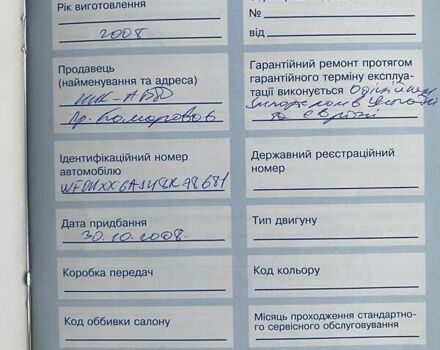 Рік виготовлення
2008
№
від
Продавець
(найменування та адреса)
Гарантійний ремонт протягом
гарантійного терміну експлуа-
тації виконується
та
Ідентифікаційний номер
автомобілю
Державний реєстраційний
номер
Дата придбання
30.10.2008
Тип двигуну
Коробка передач
Код кольору
Код оббивки салону
Місяць проходження стандартно-
го сервісного обслуговування